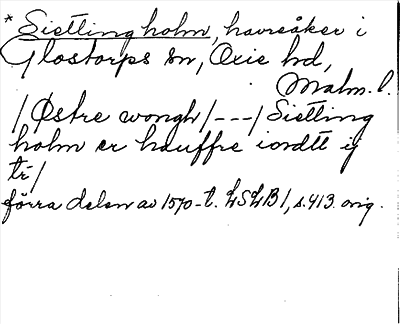 * Siettingholm, havreåker i
Glostorps sn, Oxie hd,
Malm. l.
/Østre wongh/---/Sietting
holm er hauffre iordtt ij
tr/
förra delen av 1570-t. LSLB1, s. 413. orig.